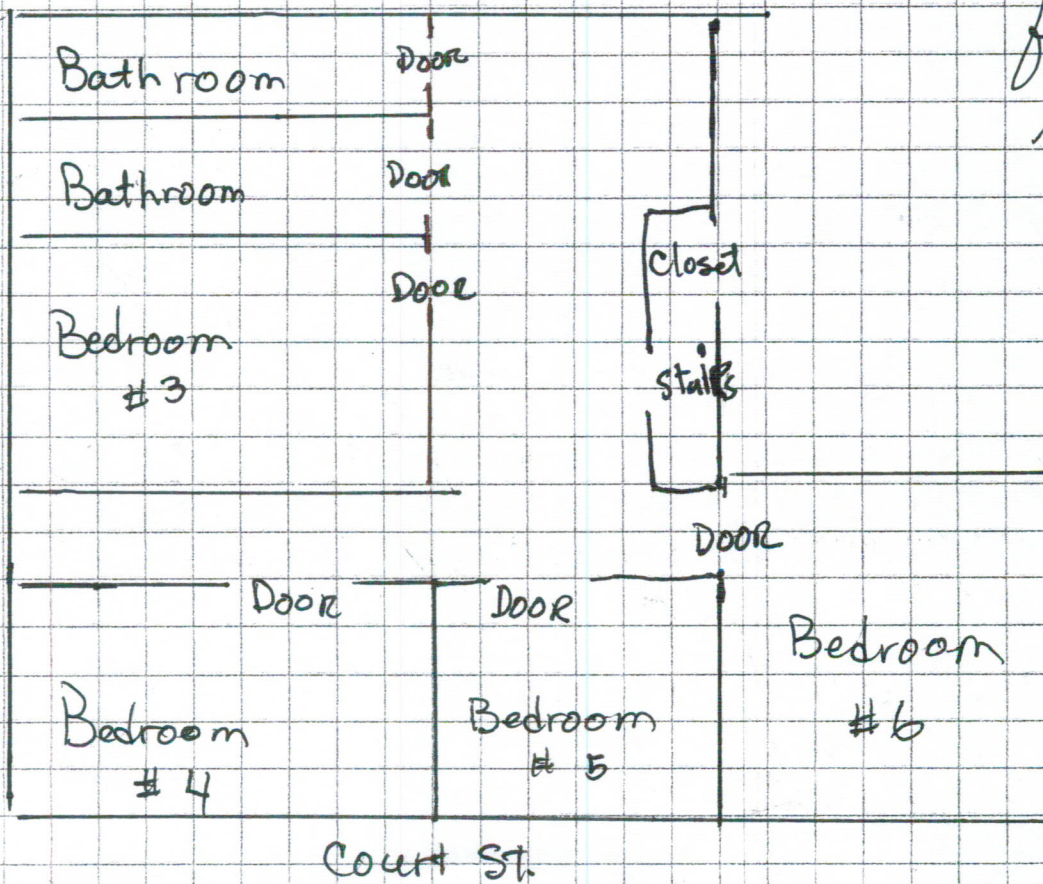 Bathroom
Door
Bathroom
Door
Closet
Door
Bedroom
# 3
Stairs
DOOR
DOOR
DOOR
Bedroom
# 6
Bedroom
# 4
Bedroom
# 5
Court St.